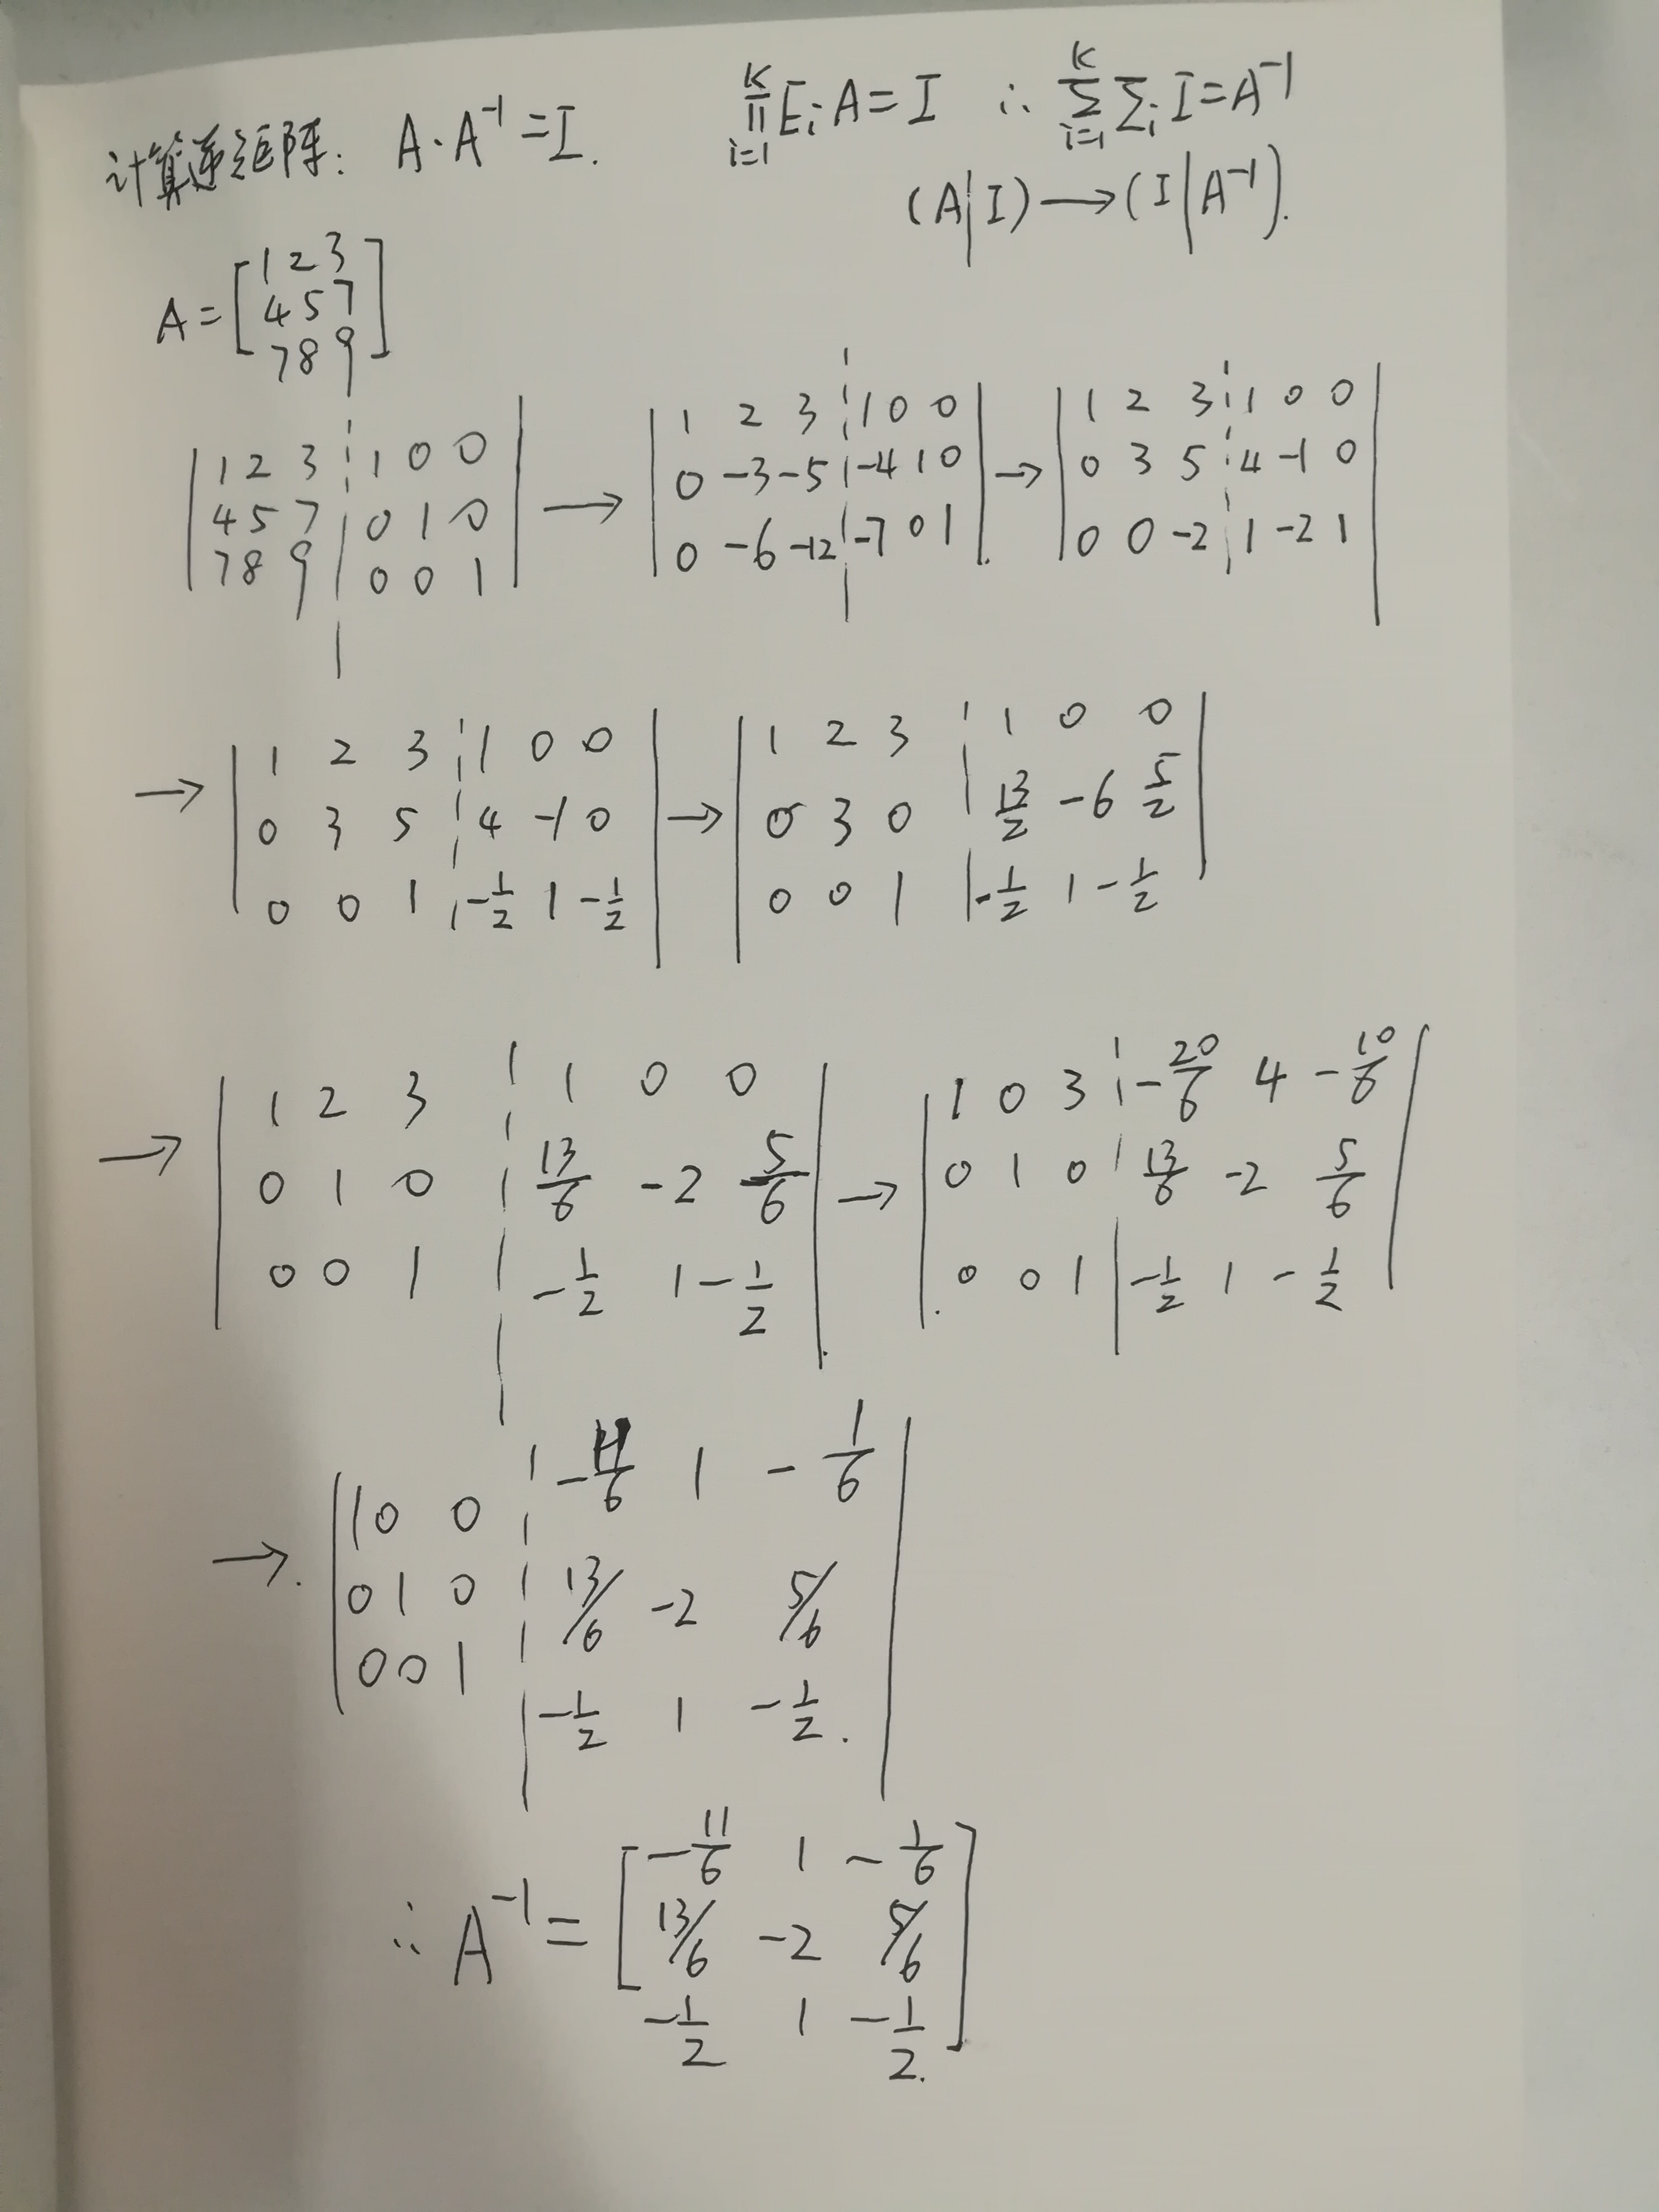 计算逆矩阵: A·A⁻¹=I. ∏ᵢ₌₁ᴷ Eᵢ A=I ∴ ∑ᵢ₌₁ᴷ ∑ᵢ I=A⁻¹
(A|I)→(I|A⁻¹).
A=[
1 2 3
4 5 7
7 8 9
]
| 1 2 3 ¦ 1 0 0 |
| 4 5 7 ¦ 0 1 0 |
| 7 8 9 ¦ 0 0 1 |
→ | 1 2 3 ¦ 1 0 0 |
| 0 -3 -5 ¦ -4 1 0 |
| 0 -6 -12 ¦ -7 0 1 |.
→ | 1 2 3 ¦ 1 0 0 |
| 0 3 5 ¦ 4 -1 0 |
| 0 0 -2 ¦ 1 -2 1 |
→ | 1 2 3 ¦ 1 0 0 |
| 0 3 5 ¦ 4 -1 0 |
| 0 0 1 ¦ -1/2 1 -1/2 |
→ | 1 2 3 ¦ 1 0 0 |
| 0 3 0 ¦ 13/2 -6 5/2 |
| 0 0 1 ¦ -1/2 1 -1/2 |
→ | 1 2 3 ¦ 1 0 0 |
| 0 1 0 ¦ 13/6 -2 5/6 |
| 0 0 1 ¦ -1/2 1 -1/2 |.
→ | 1 0 3 ¦ -20/6 4 -10/6 |
| 0 1 0 ¦ 13/6 -2 5/6 |
| 0 0 1 ¦ -1/2 1 -1/2 |
→. | 1 0 0 ¦ -11/6 1 -1/6 |
| 0 1 0 ¦ 13/6 -2 5/6 |
| 0 0 1 ¦ -1/2 1 -1/2. |
∴ A⁻¹=[
-11/6 1 -1/6
13/6 -2 5/6
-1/2 1 -1/2.
]